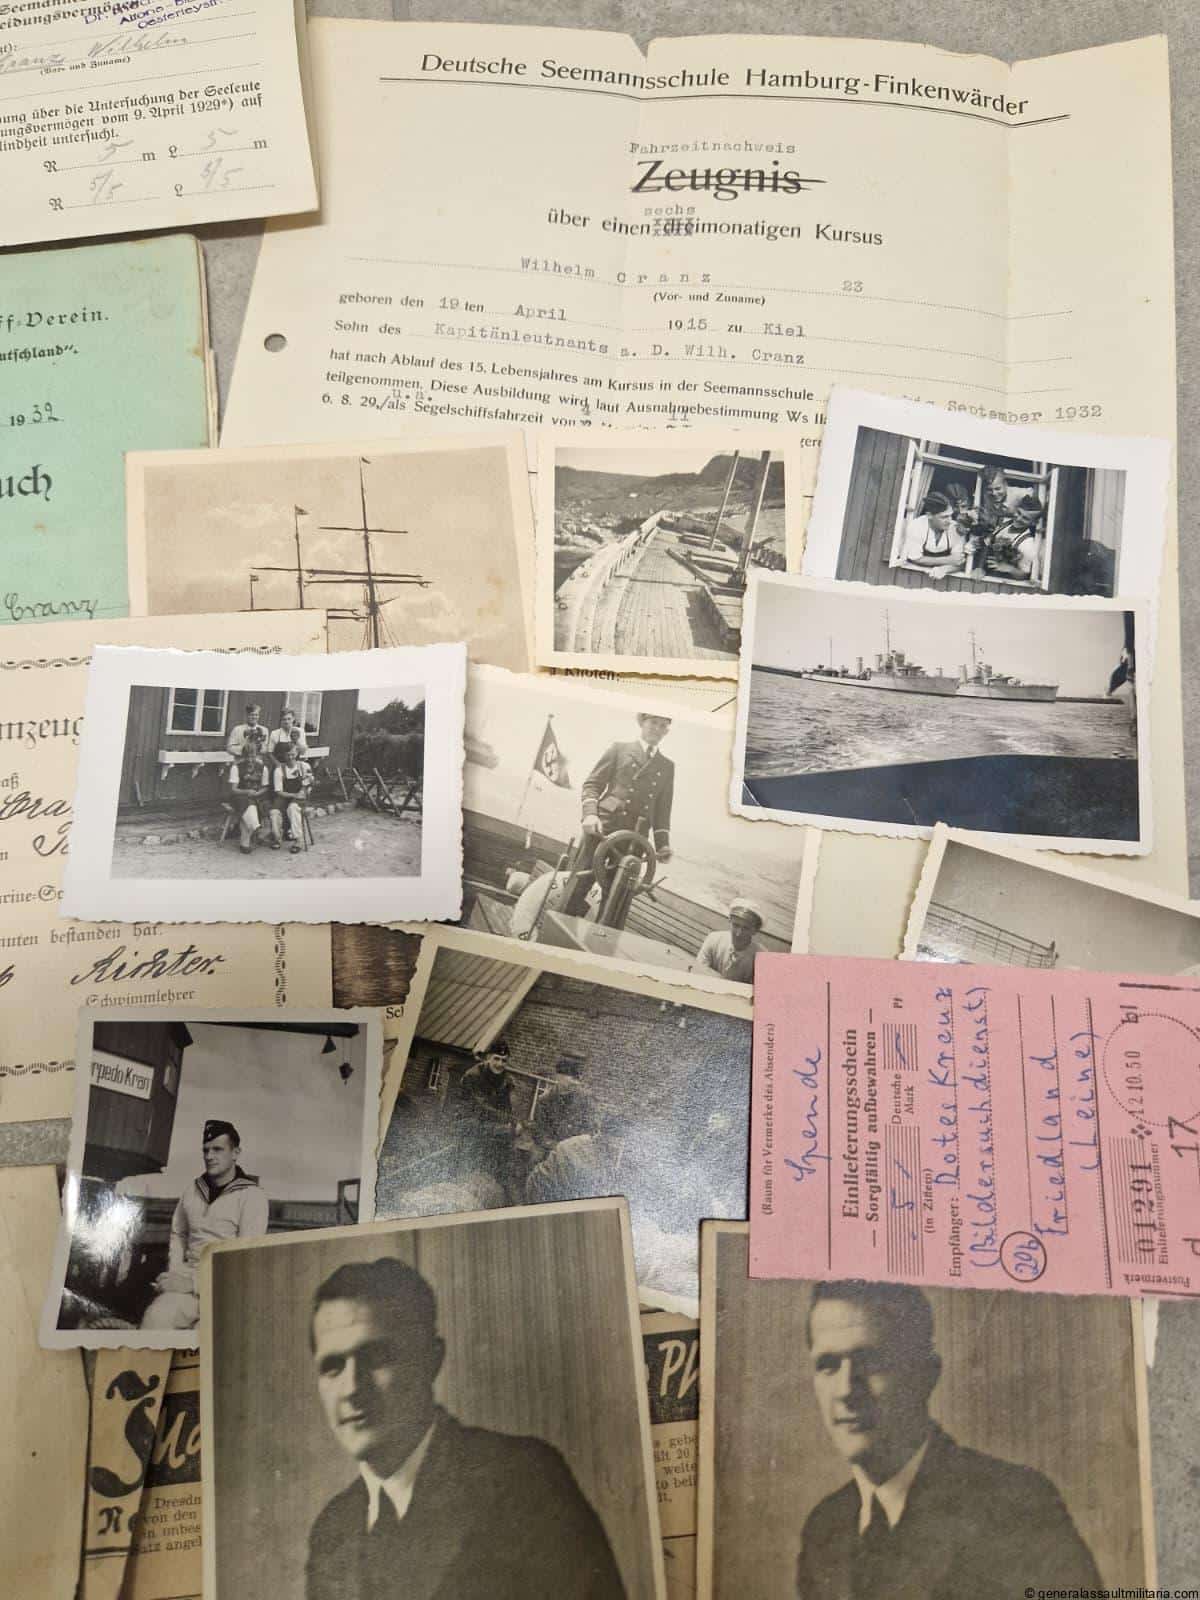 Seemanns
eidungsvermögen
Cranz Wilhelm
(Vor- und Zuname)
über die Untersuchung der Seeleute
ungsvermögen vom 9. April 1929*) auf
lindheit untersucht.
R 5 m L 5 m
R 5/5 L 5/5
Deutsche Seemannsschule Hamburg-Finkenwärder
Fahrzeitnachweis
Zeugnis
sechs
über einen dreimonatigen Kursus
Wilhelm Cranz 23
(Vor- und Zuname)
geboren den 19ten April 1915 zu Kiel
Sohn des Kapitänleutnants a. D. Wilh. Cranz
hat nach Ablauf des 15. Lebensjahres am Kursus in der Seemannsschule
September 1932
teilgenommen. Diese Ausbildung wird laut Ausnahmebestimmung Ws
u.a. 4 11
6. 8. 29./als Segelschiffsfahrzeit von
ff-Verein.
utschland".
1932
uch
Cranz
Knoten:
nzeug
aß
Cra
rine-Sc
nnten bestanden hat.
Richter.
Schwimmlehrer
Sch
rpedo Kran
(Raum für Vermerke des Absenders)
Spende
Einlieferungsschein
— Sorgfältig aufbewahren —
5 Deutsche Mark — Pf
(in Ziffern)
Empfänger: Rotes Kreuz
(Bildersuchdienst)
20b Friedland
(Leine)
01291
Einlieferungsnummer
12.10.50
bl
17
Postvermerk
d
Pl
gebe
ält 20
weite
to bei
Dresdn
von den
in unbes
satz angel
© generalassaultmilitaria.com